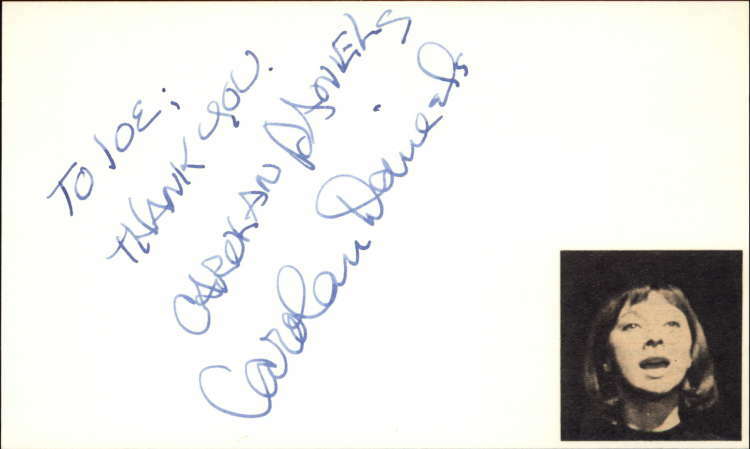 TO JOE;
THANK YOU.
CAROLAN DANIELS
Carolan Daniels